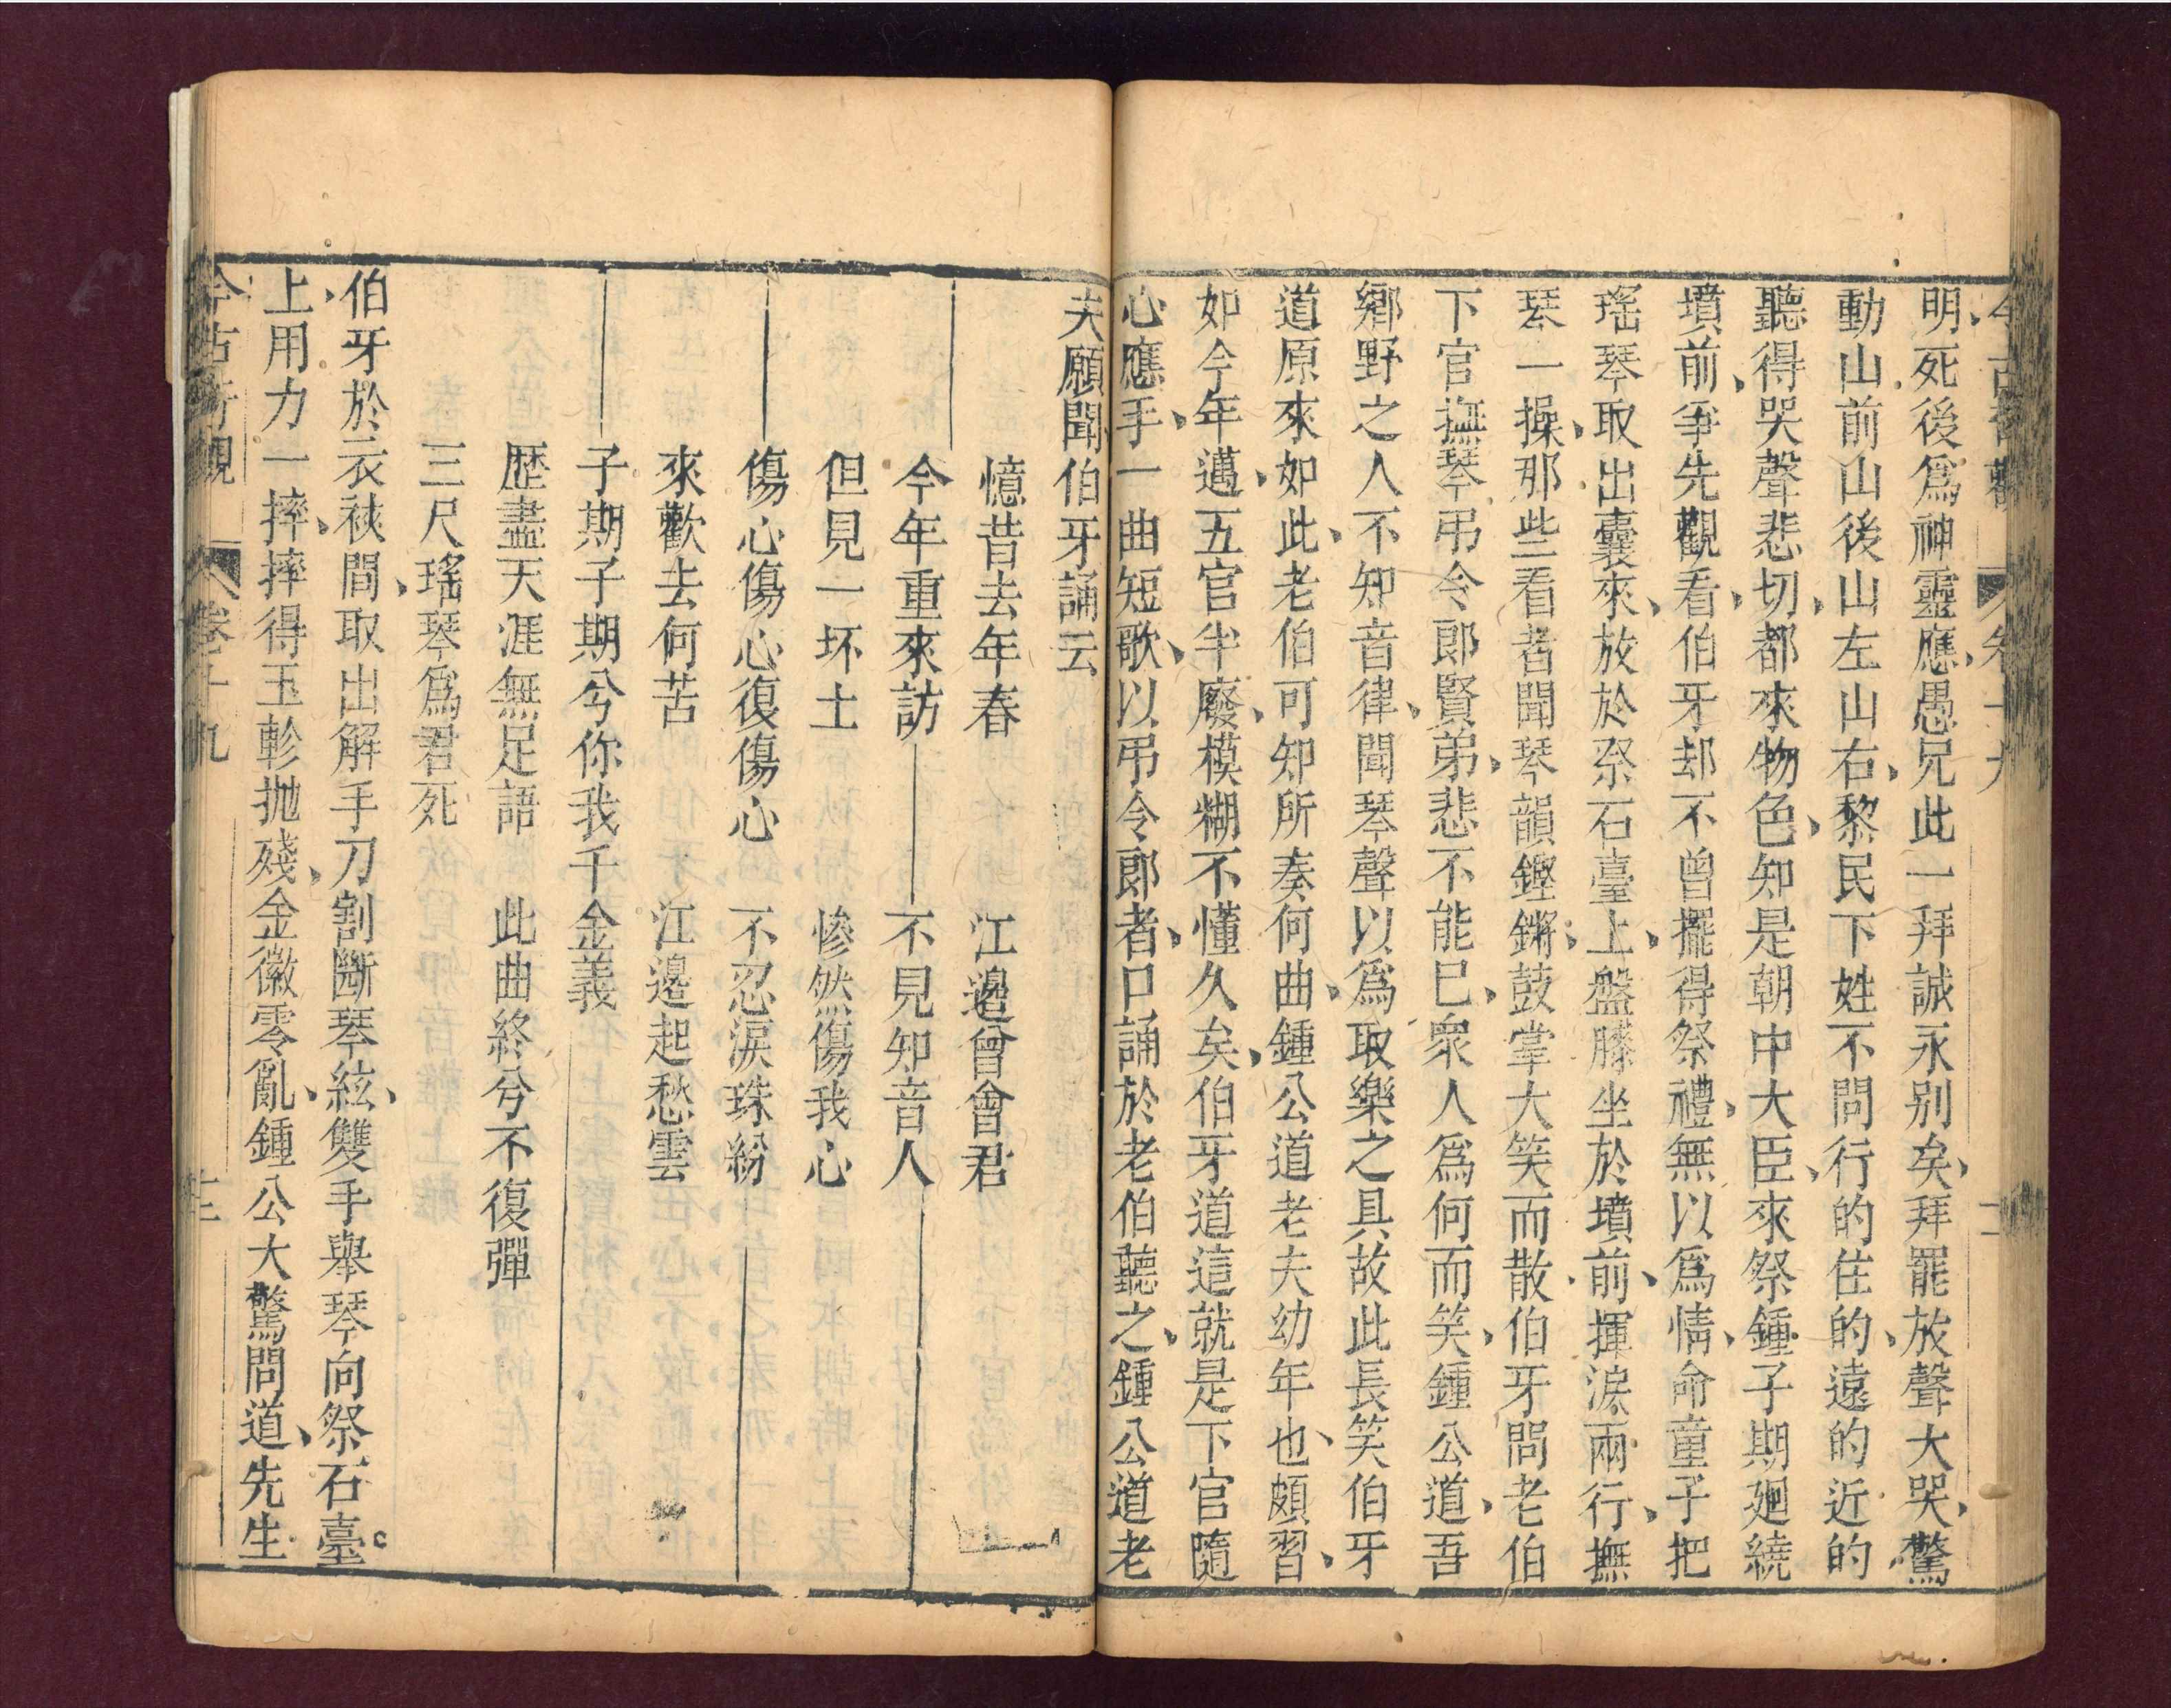 今古奇觀 卷十九
明死後爲神靈應、愚兄此一拜誠永别矣、拜罷放聲大哭、驚
動山前山後山左山右、黎民下姓不問行的住的、遠的近的
聽得哭聲悲切、都來物色、知是朝中大臣、來祭鍾子期、廻繞
墳前、爭先觀看、伯牙却不曾擺得祭禮、無以爲情、命童子把
瑤琴取出囊來、放於祭石臺上、盤膝坐於墳前、揮淚兩行、撫
琴一操、那些看者聞琴韻鏗鏘、鼓掌大笑而散、伯牙問老伯
下官撫琴弔令郎賢弟、悲不能已、衆人爲何而笑、鍾公道、吾
鄉野之人不知音律、聞琴聲以爲取樂之具故此長笑伯牙
道原來如此、老伯可知所奏何曲、鍾公道老夫幼年也、頗習、
如今年邁、五官半廢、模糊不懂久矣、伯牙道這就是下官隨
心應手、一曲短歌、以弔令郎者、口誦於老伯聽之、鍾公道老
夫願聞伯牙誦云
憶昔去年春 江邊曾會君
今年重來訪 不見知音人
但見一坏土 慘然傷我心
傷心傷心復傷心 不忍淚珠紛
來歡去何苦 江邊起愁雲
子期子期兮你我千金義
歷盡天涯無足語 此曲終兮不復彈
三尺瑤琴爲君死
伯牙於衣裌間、取出解手刀割斷琴絃、雙手舉琴向祭石臺
上、用力一摔、摔得玉軫抛殘、金徽零亂、鍾公大驚問道、先生
今古奇觀 卷十九